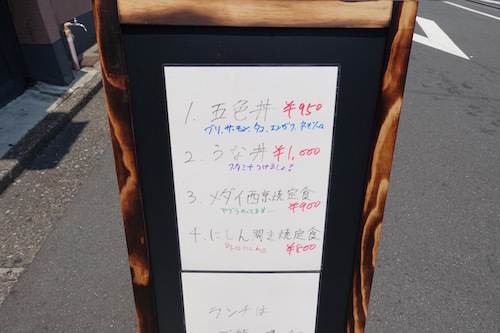 1. 五色丼 ¥950
ブリ、サーモン、タコ、エンガワ、ネギトロ
2. うな丼 ¥1,000
スタミナつけましょう
3. メダイ西京焼定食
¥900
4. にしん開き焼定食
¥800
ランチは